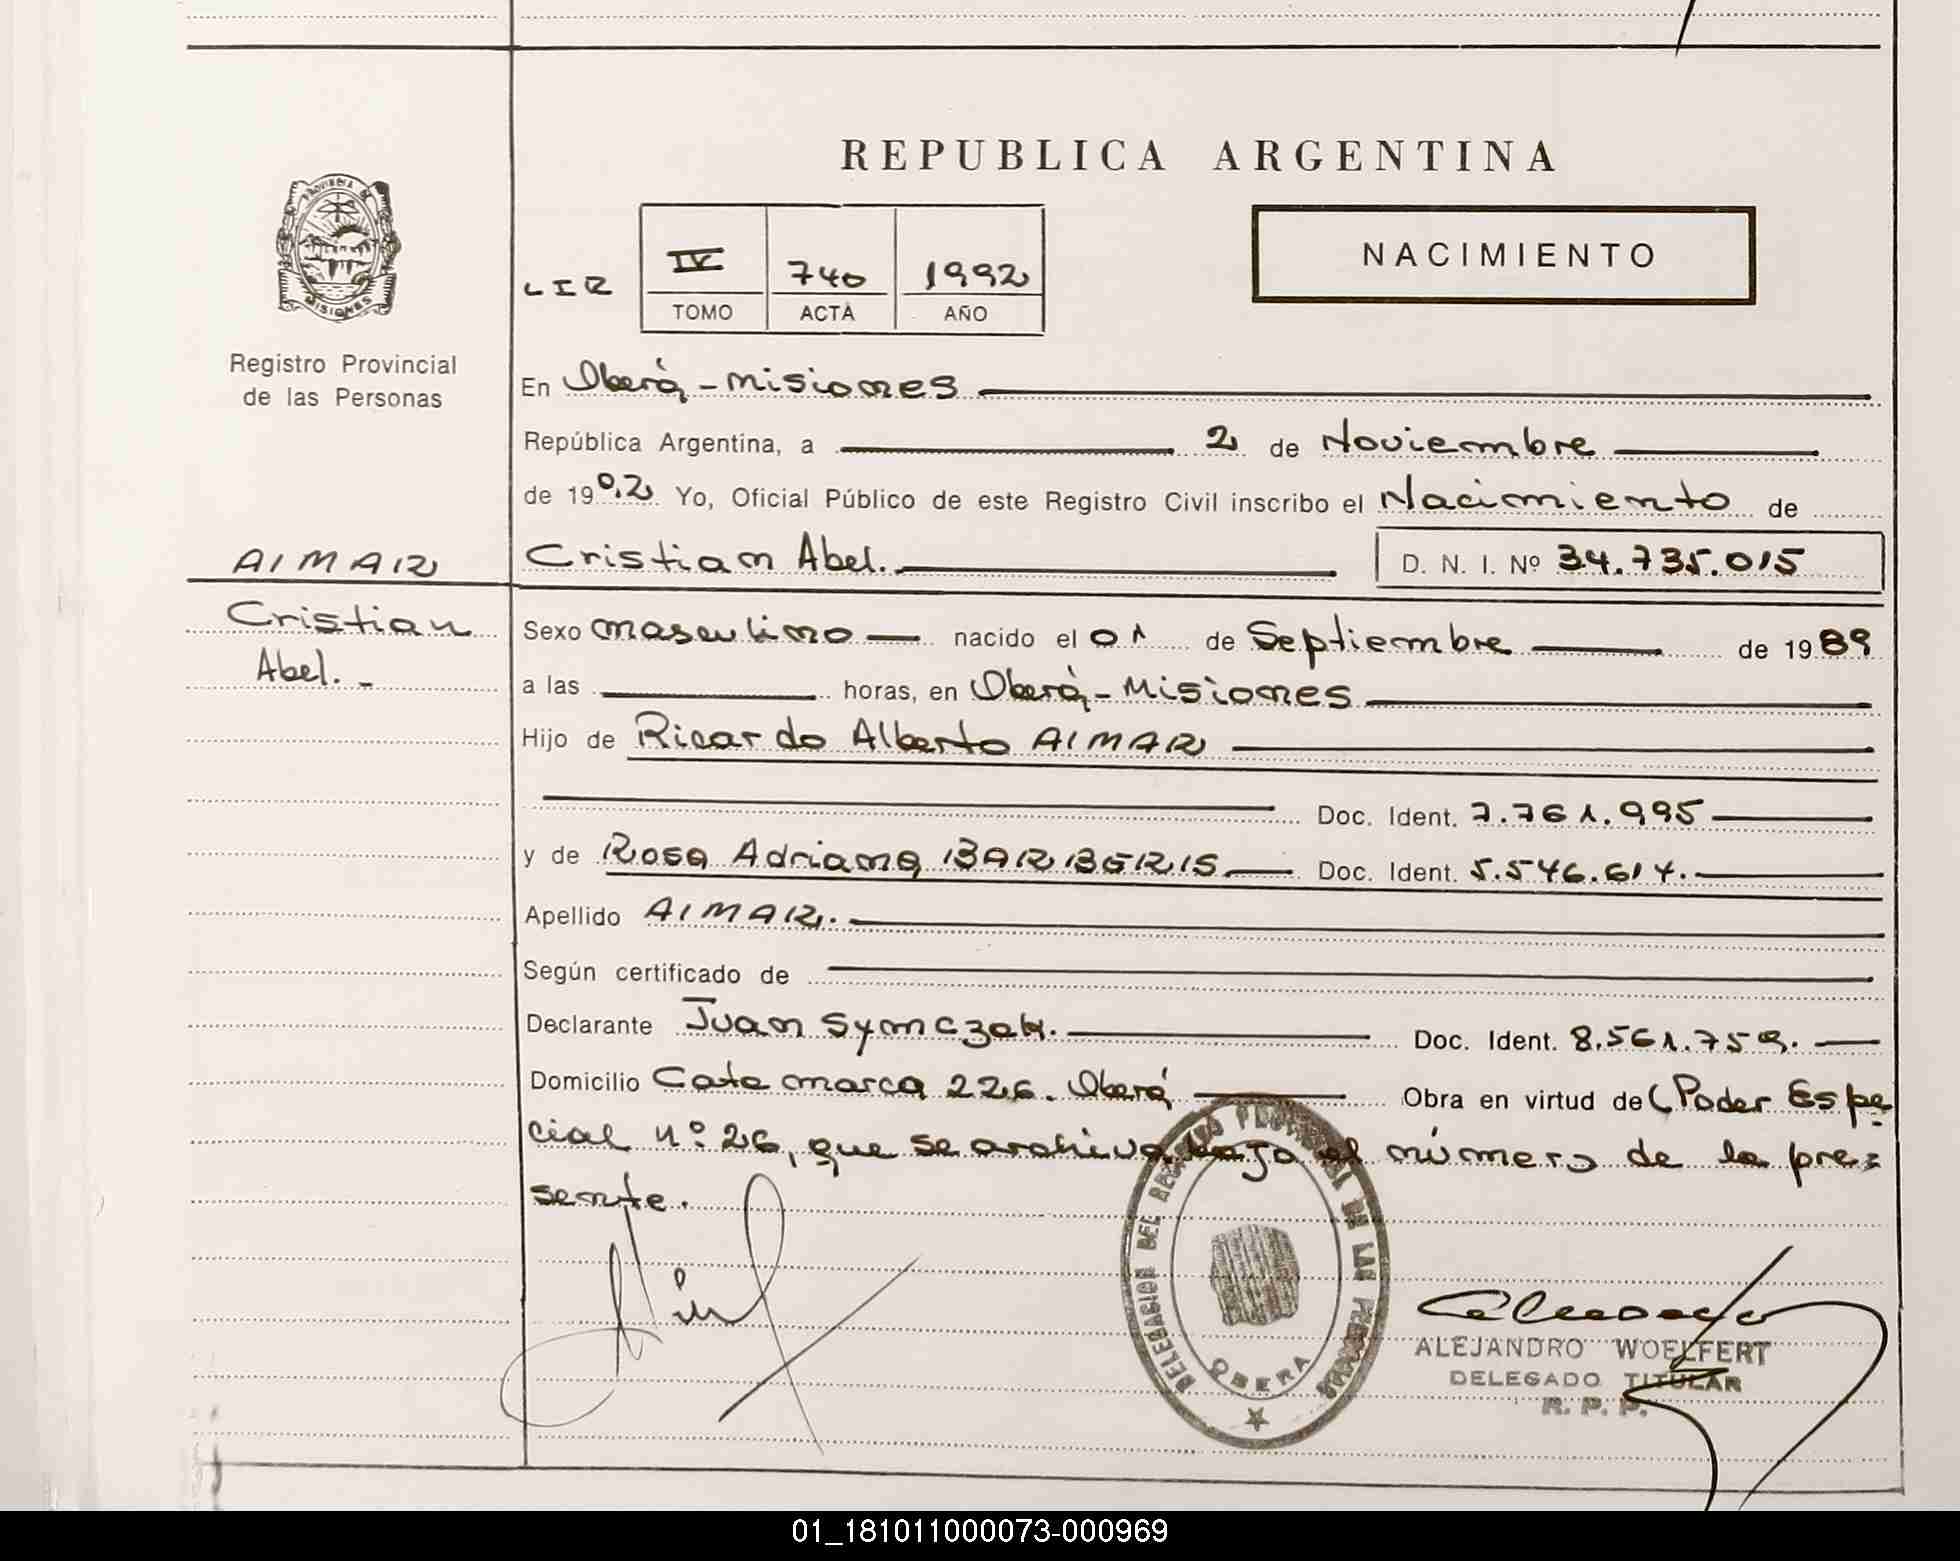 REPUBLICA ARGENTINA
PROVINCIA DE
MISIONES
Registro Provincial
de las Personas
LIR
IV 740 1992
TOMO ACTA AÑO
NACIMIENTO
En Oberá - Misiones
República Argentina, a 2 de Noviembre
de 1992 Yo, Oficial Público de este Registro Civil inscribo el Nacimiento de
AIMAR
Cristian Abel. D. N. I. Nº 34.735.015
Cristian
Abel. -
Sexo masculino nacido el 01 de Septiembre de 1989
a las horas, en Oberá - Misiones
Hijo de Ricardo Alberto AIMAR
Doc. Ident. 7.761.995
y de Rosa Adriana BARBERIS Doc. Ident. 5.546.614.
Apellido AIMAR.
Según certificado de
Declarante Juan Symczak. Doc. Ident. 8.561.759.
Domicilio Catamarca 226. Oberá Obra en virtud de (Poder Espe
cial nº 26, que se archiva bajo el número de la pre=
sente.
DELEGACION DEL REGISTRO PROVINCIAL DE LAS PERSONAS
OBERA
ALEJANDRO WOELFERT
DELEGADO TITULAR
R. P. P.
01_181011000073-000969